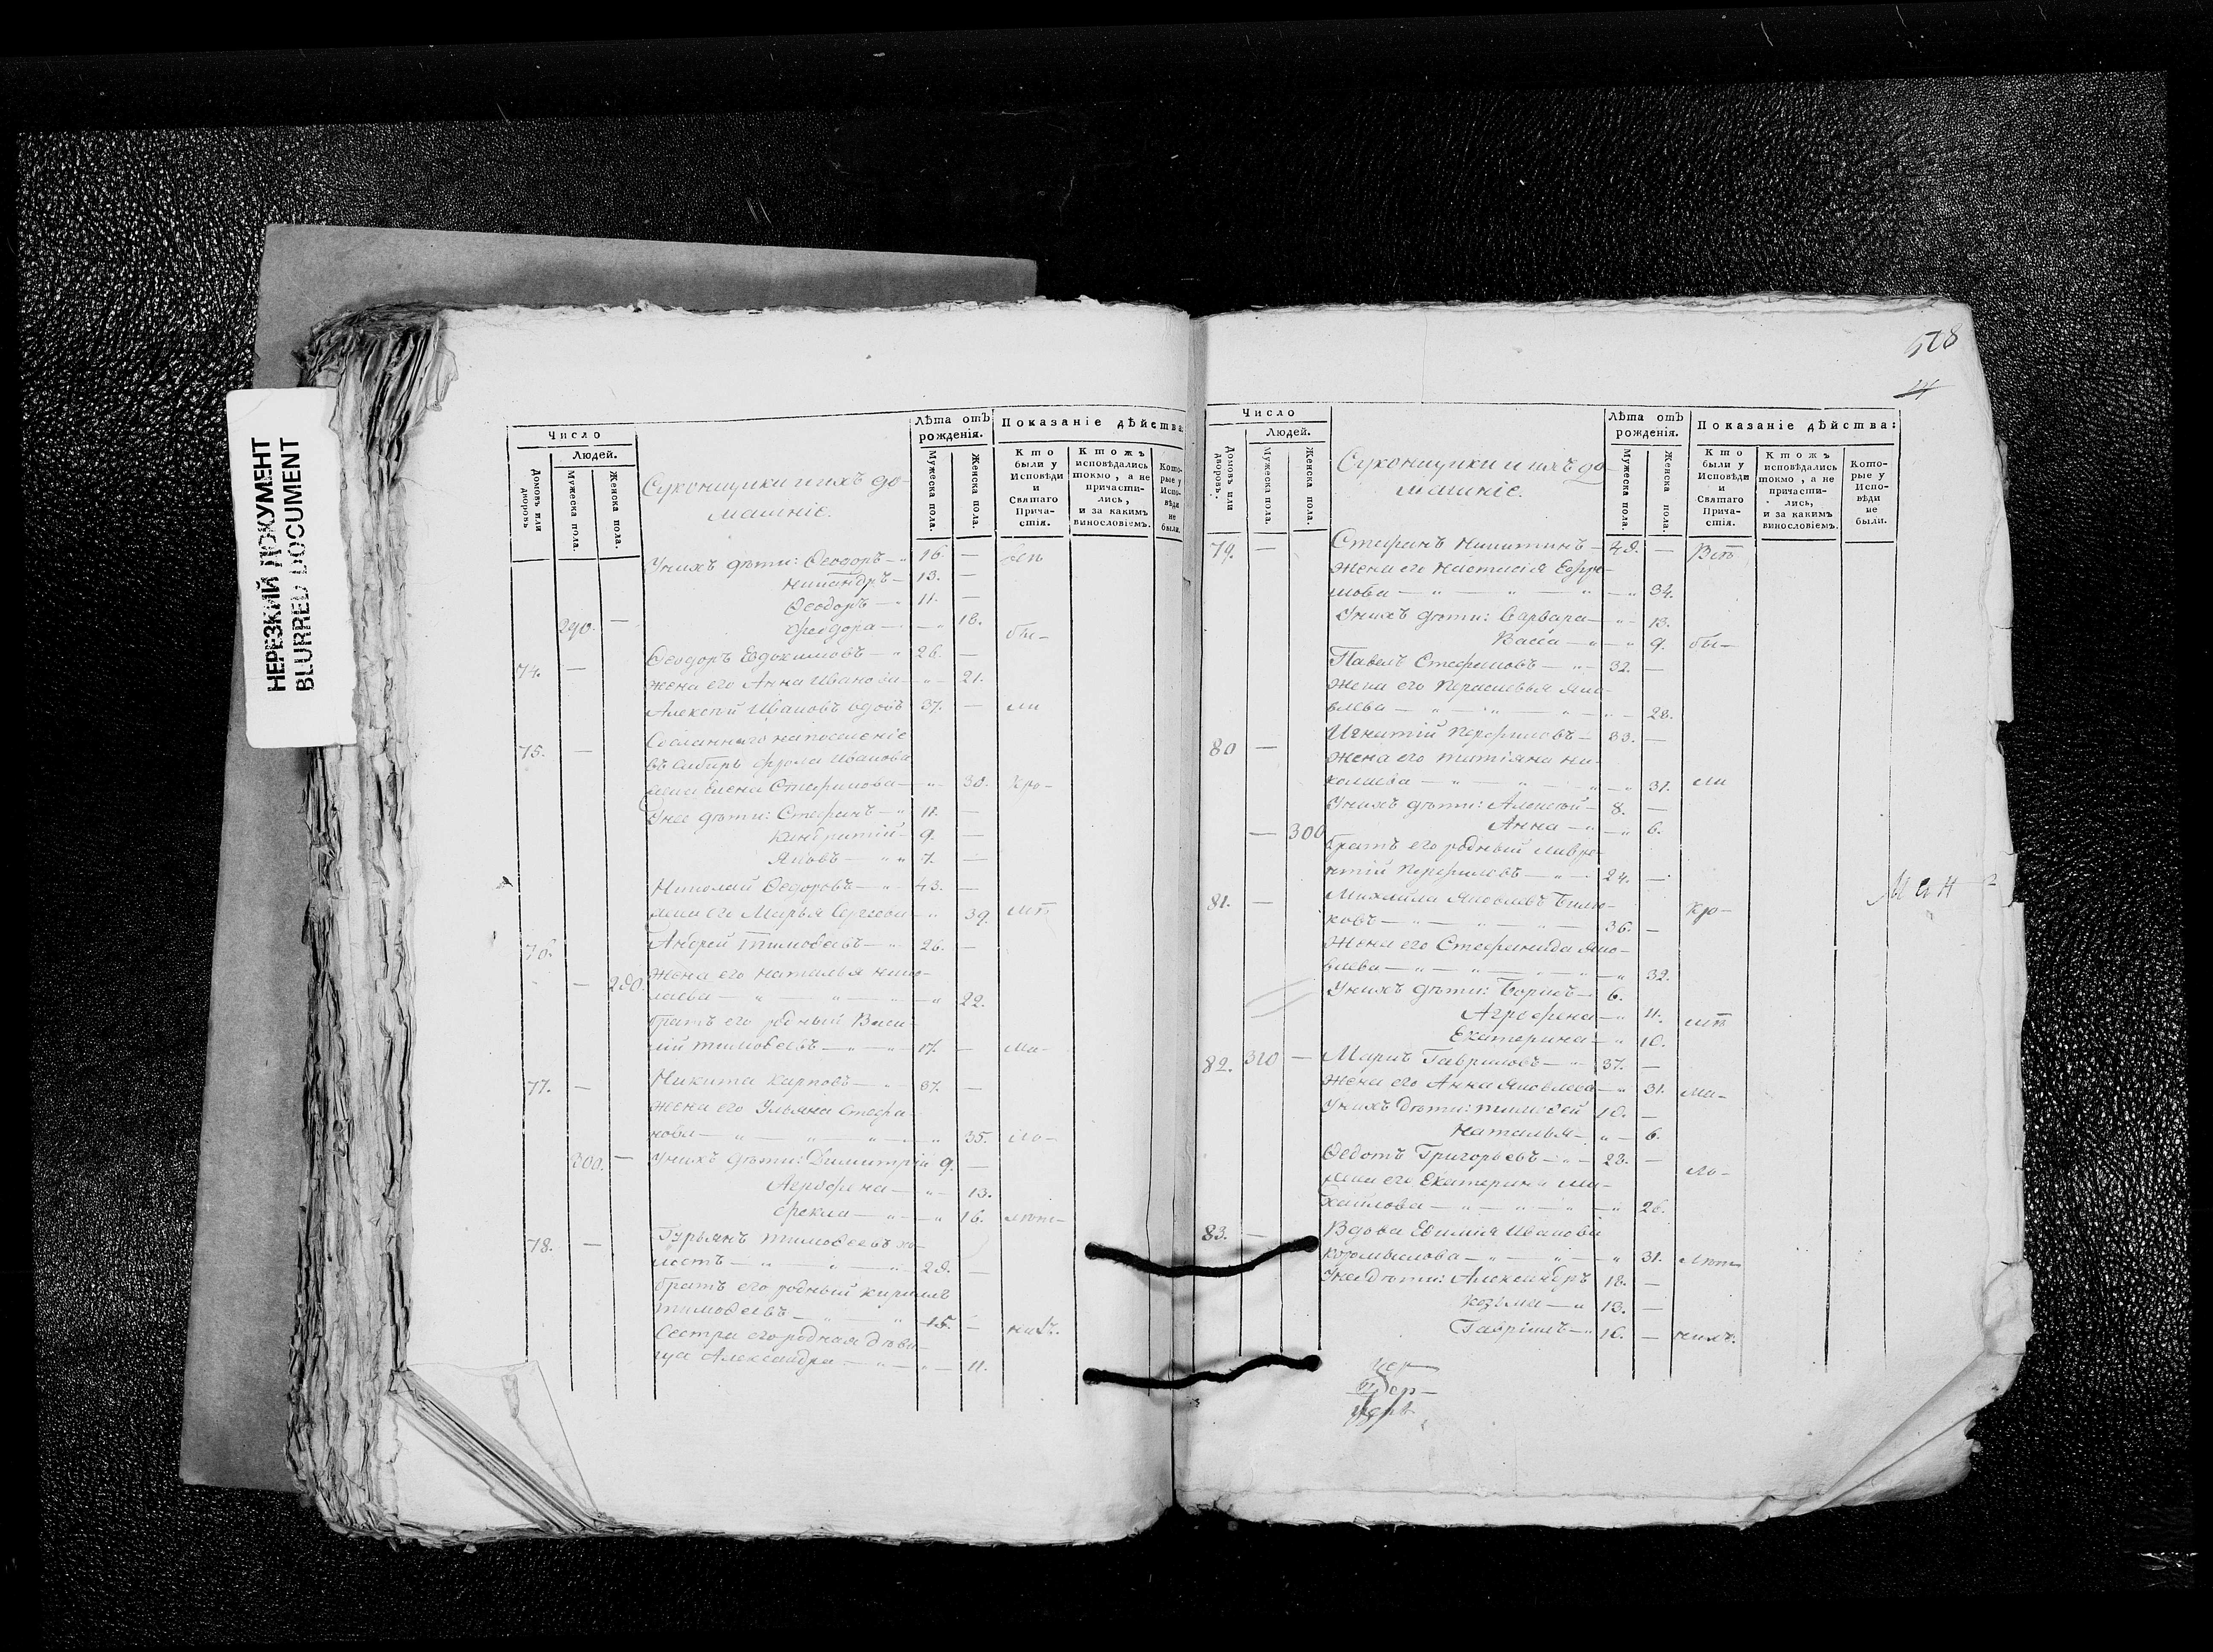 НЕРЕЗКИЙ ДОКУМЕНТ
BLURRED DOCUMENT
Число
Людей.
Домовъ или дворовъ
Мужеска пола.
Женска пола.
Суконщики и ихъ до-
машніе.
Лѣта отъ рожденія.
Мужеска пола.
Женска пола.
Показаніе дѣйства:
Кто были у Исповѣди и Святаго Прича-стія.
Ктожъ исповѣдались токмо, а не причасти-лись, и за какимъ винословіемъ.
Кото-рые у Испо-вѣди не были.
У нихъ дѣти: Ѳеодоръ — 16. —
Никандръ — 13. —
Ѳеодоръ — 11. —
290. — Ѳеодора — 18. бы-
74. — Ѳеодоръ Евдокимовъ — 26. —
жена его Анна Иванова — 21.
Алексѣй Ивановъ вдовъ 37. — ли
75. — Сосланнаго на поселеніе
въ Сибирь Фрола Иванова
жена Елена Стефанова — 30. Кро-
У нее дѣти: Стефанъ — 11. —
9. —
Яковъ — 7. —
Николай Ѳедоровъ — 43. —
жена его Марья Сергѣева 39.
76. Андрей Тимоѳеевъ — 26. —
— 280. Жена его Наталья Нико-
лаева — 22.
братъ его родный Васи-
лій Тимоѳеевъ — 17. — Ма-
77. — Никита Карповъ — 37. —
жена его Ульяна Стефа-
нова — 35. ло-
300. — У нихъ дѣти: Димитрій 9. —
Агрофена — 13.
Фекла — 16. лѣт-
78. — Гурьянъ Тимоѳеевъ хо-
лостъ — 28. —
братъ его родный Кирилъ
Тимоѳеевъ — 15. — нихъ.
Сестра его родная дѣви-
ца Александра — 11.
578
Число
Людей.
Домовъ или дворовъ.
Мужеска пола.
Женска пола.
Суконщики и ихъ до-
машніе.
Лѣта отъ рожденія.
Мужеска пола.
Женска пола.
Показаніе дѣйства:
Кто были у Исповѣди и Святаго Прича-стія.
Ктожъ исповѣдались токмо, а не причасти-лись, и за какимъ винословіемъ.
Кото-рые у Испо-вѣди не были.
79. — Стефанъ Никитинъ — 48. —
Жена его Настасія Ефре-
мова — 34.
У нихъ дѣти: Варвара — 13.
Васса — 9. бы-
Павелъ Стефановъ — 32. —
Жена его Парасковья Яко-
влева — 28.
80 — Игнатій Перфиловъ — 33. —
Жена его Татіяна Ни-
колаева — 31. ли
У нихъ дѣти: Алексѣй — 8. —
— 300 Анна — 6.
братъ его родный Лавре-
нтій Перфиловъ — 24. —
81. — Михайла Яковлевъ Бирю-
ковъ — 36. — Кро-
Жена его Стефанида Яко-
влева — 32.
У нихъ дѣти: Борисъ — 6.
Агрофена — 11.
Екатерина — 10.
82. 310 — Маркъ Гавриловъ — 37. —
Жена его Анна Яковлева — 31. Ма-
У нихъ дѣти: Тимоѳей 10. —
Наталья — 6.
Ѳедотъ Григорьевъ — 23. — ло-
жена его Екатерина Ми-
хайлова — 26.
83. — Вдова Евѳимія Иванова
Коромыслова — 31. лѣт-
У нее дѣти: Александръ 18. —
Козьма — 13. —
Гавріилъ — 10. — нихъ.